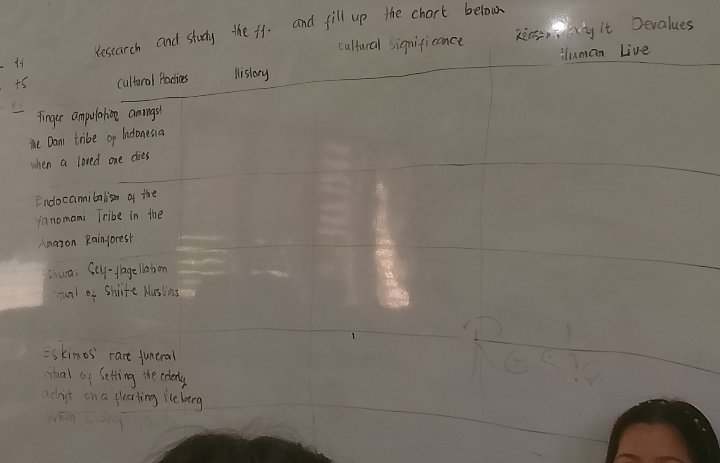 ++
Research and study the ff. and fill up the chart below
+5
Cultural Practices
History
Cultural Significance
It Devalues
Human Live
Finger amputation amongst
the Dani tribe of Indonesia
when a loved one dies
Endocannibalism of the
Yanomami Tribe in the
Amazon Rainforest
Self-flagellation
of Shiite Muslims
Eskimos' rare funeral
of setting the elderly
adrift on a floating iceberg